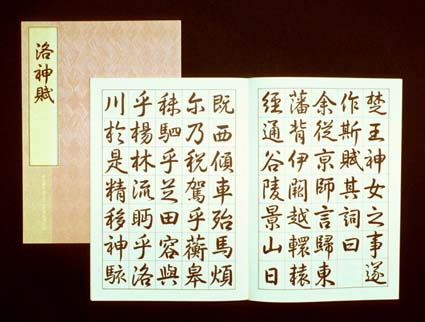 洛神賦
楚王神女之事遂
作斯賦其詞曰
余從京師言歸東
藩背伊闕越轘轅
經通谷陵景山日
既西傾車殆馬煩
尔乃税駕乎蘅皋
秣駟乎芝田容與
乎楊林流眄乎洛
川於是精移神駭